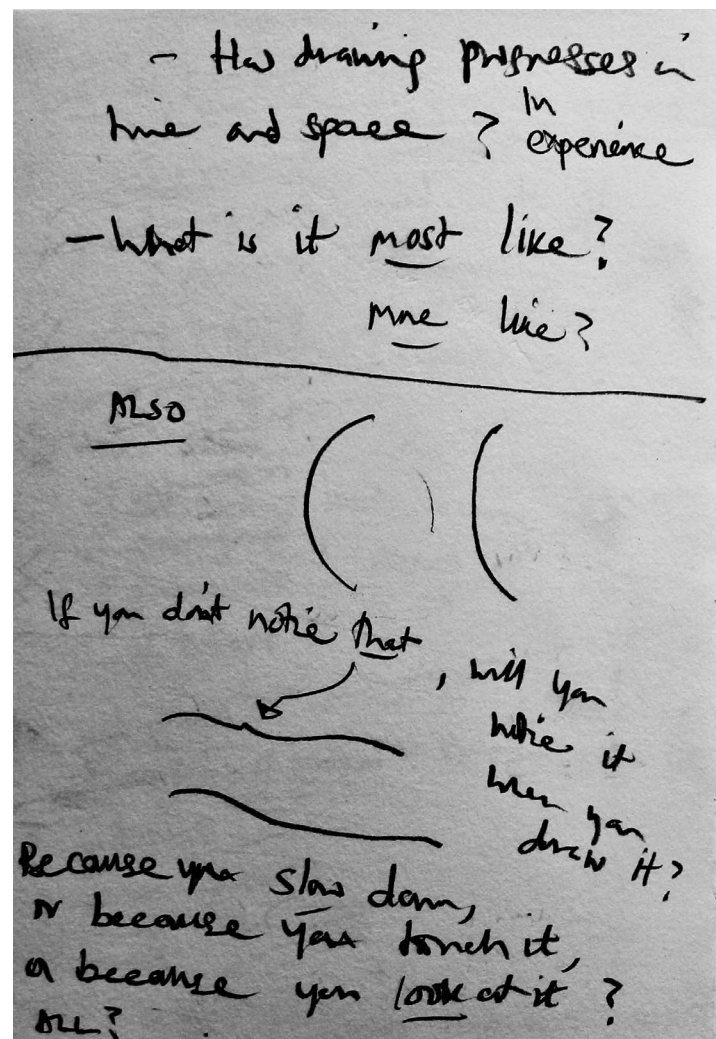 - How drawing progresses in
time and space? In experience
- What is it most like?
more like?
ALSO
If you don't notice that, will you
notice it
when you
draw it?
Because you slow down,
or because you touch it,
or because you look at it?
ALL?